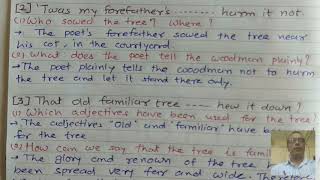 [2] 'Twas my forefather's ------- harm it not.
(1) Who sowed the tree? Where?
→ The poet's forefather sowed the tree near
his cot, in the courtyard.
(2) What does the poet tell the woodman plainly?
→ The poet plainly tells the woodman not to harm
the tree and let it stand there only.
[3] That old familiar tree ----- hew it down?
(1) Which adjectives have been used for the tree?
→ The adjectives "Old" and 'familiar' have b
for the tree
(2) How can we say that the tree is fami
→ The glory and renown of the tree
been spread very far and wide. Therefore